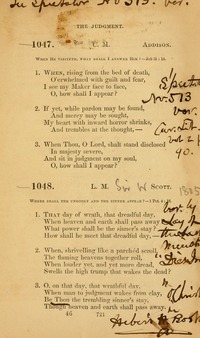 THE JUDGMENT.
1047. C. M. ADDISON.
WHEN HE VISITETH, WHAT SHALL I ANSWER HIM?
1. WHEN, rising from the bed of death,
O'erwhelmed with guilt and fear,
I see my Maker face to face,
O, how shall I appear?
2. If yet, while pardon may be found,
And mercy may be sought,
My heart with inward horror shrinks,
And trembles at the thought,—
3. When Thou, O Lord, shalt stand disclosed
In majesty severe,
And sit in judgment on my soul,
O, how shall I appear?
No. 513
1048. L. M. Sir W SCOTT.
WHERE SHALL THE UNGODLY AND THE SINNER APPEAR?
1. THAT day of wrath, that dreadful day,
When heaven and earth shall pass away!
What power shall be the sinner's stay?
How shall he meet that dreadful day,—
2. When, shrivelling like a parchéd scroll,
The flaming heavens together roll,
When louder yet, and yet more dread,
Swells the high trump that wakes the dead?
3. O, on that day, that wrathful day,
When man to judgment wakes from clay,
Be Thou the trembling sinner's stay,
Though heaven and earth shall pass away.
46 721